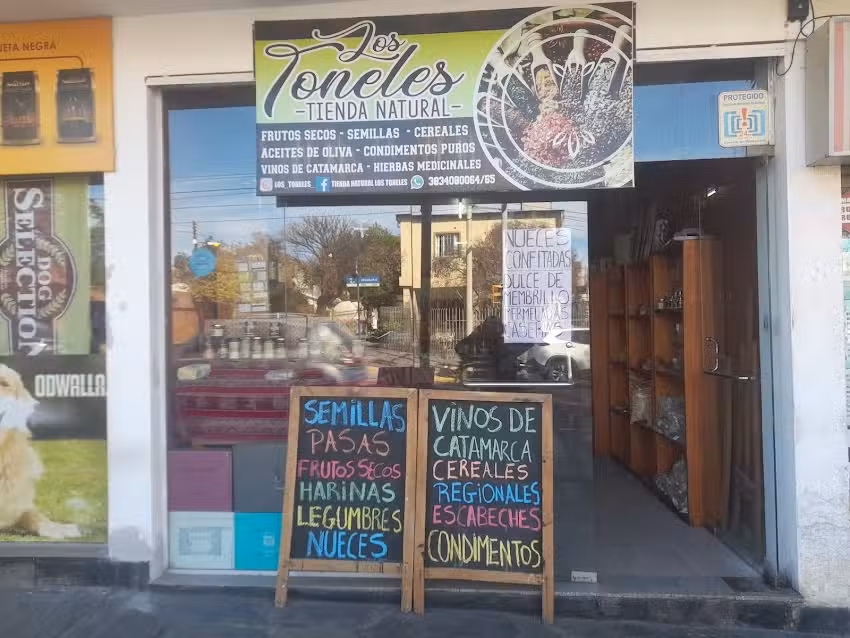 NETA NEGRA
DOG
SELECTION
ODWALLA
Los
Toneles
-TIENDA NATURAL-
FRUTOS SECOS - SEMILLAS - CEREALES
ACEITES DE OLIVA - CONDIMENTOS PUROS
VINOS DE CATAMARCA - HIERBAS MEDICINALES
LOS_TONELES TIENDA NATURAL LOS TONELES 3834080064/65
PROTEGIDO
NUECES
CONFITADAS
DULCE DE
MEMBRILLO
MERMELADAS
CASERAS
SEMILLAS
PASAS
FRUTOS SECOS
HARINAS
LEGUMBRES
NUECES
VINOS DE
CATAMARCA
CEREALES
REGIONALES
ESCABECHES
CONDIMENTOS